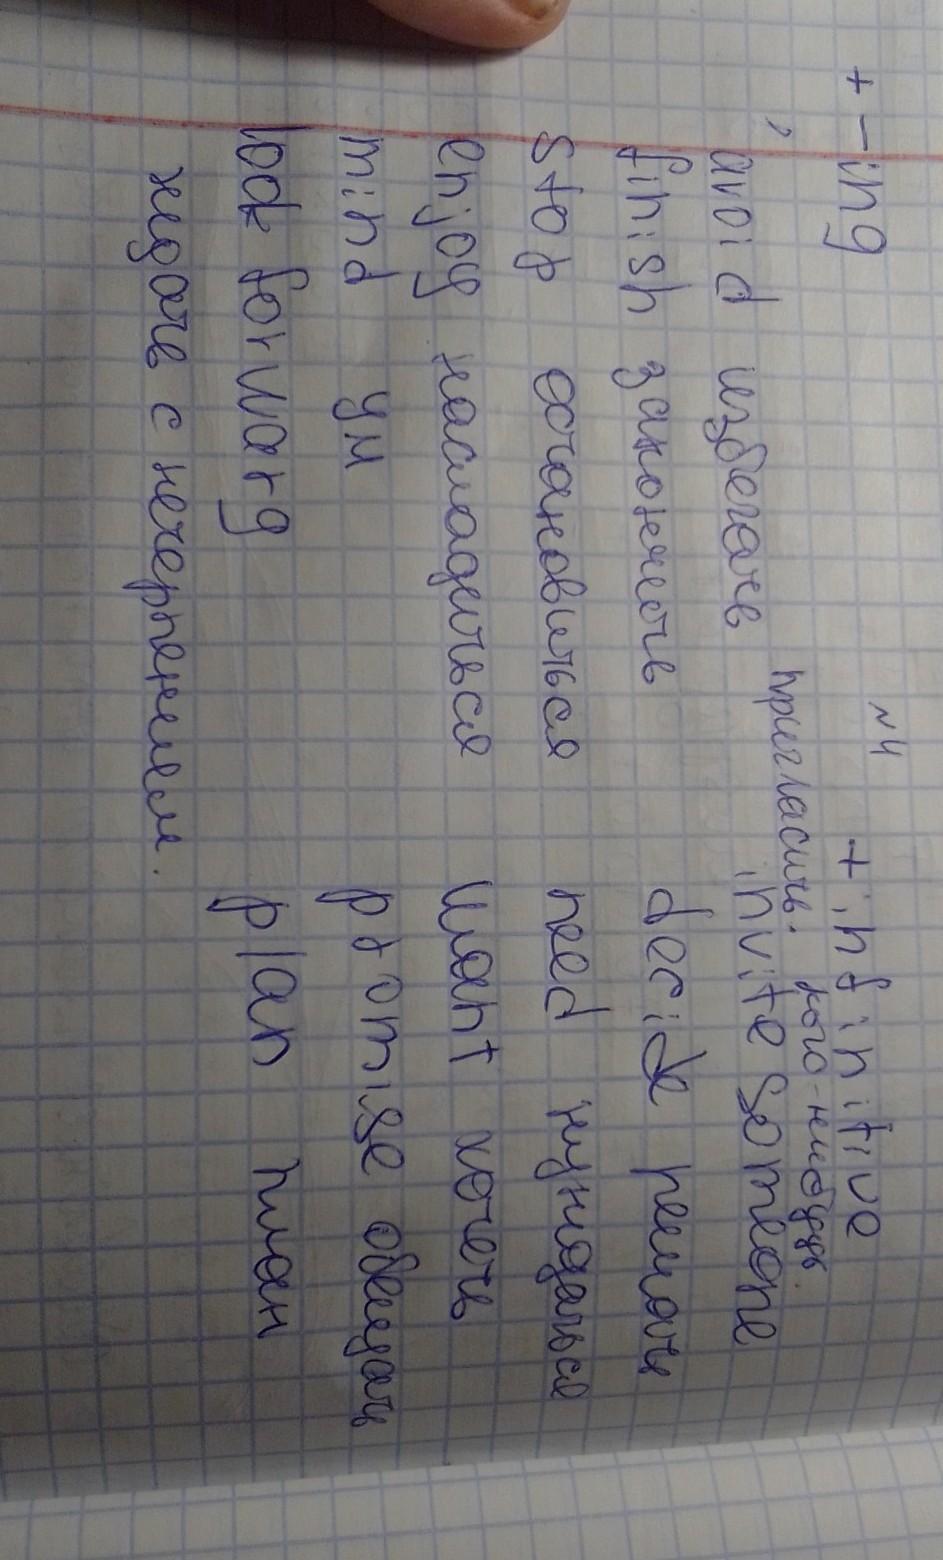 №4
+ -ing
avoid избегать
finish закончить
stop остановиться
enjoy насладиться
mind ум
look forwarg
ждать с нетерпением.
+ infinitive
пригласить кого-нибудь.
invite someone
decide решать
need нуждаться
want хотеть
promise обещать
plan план